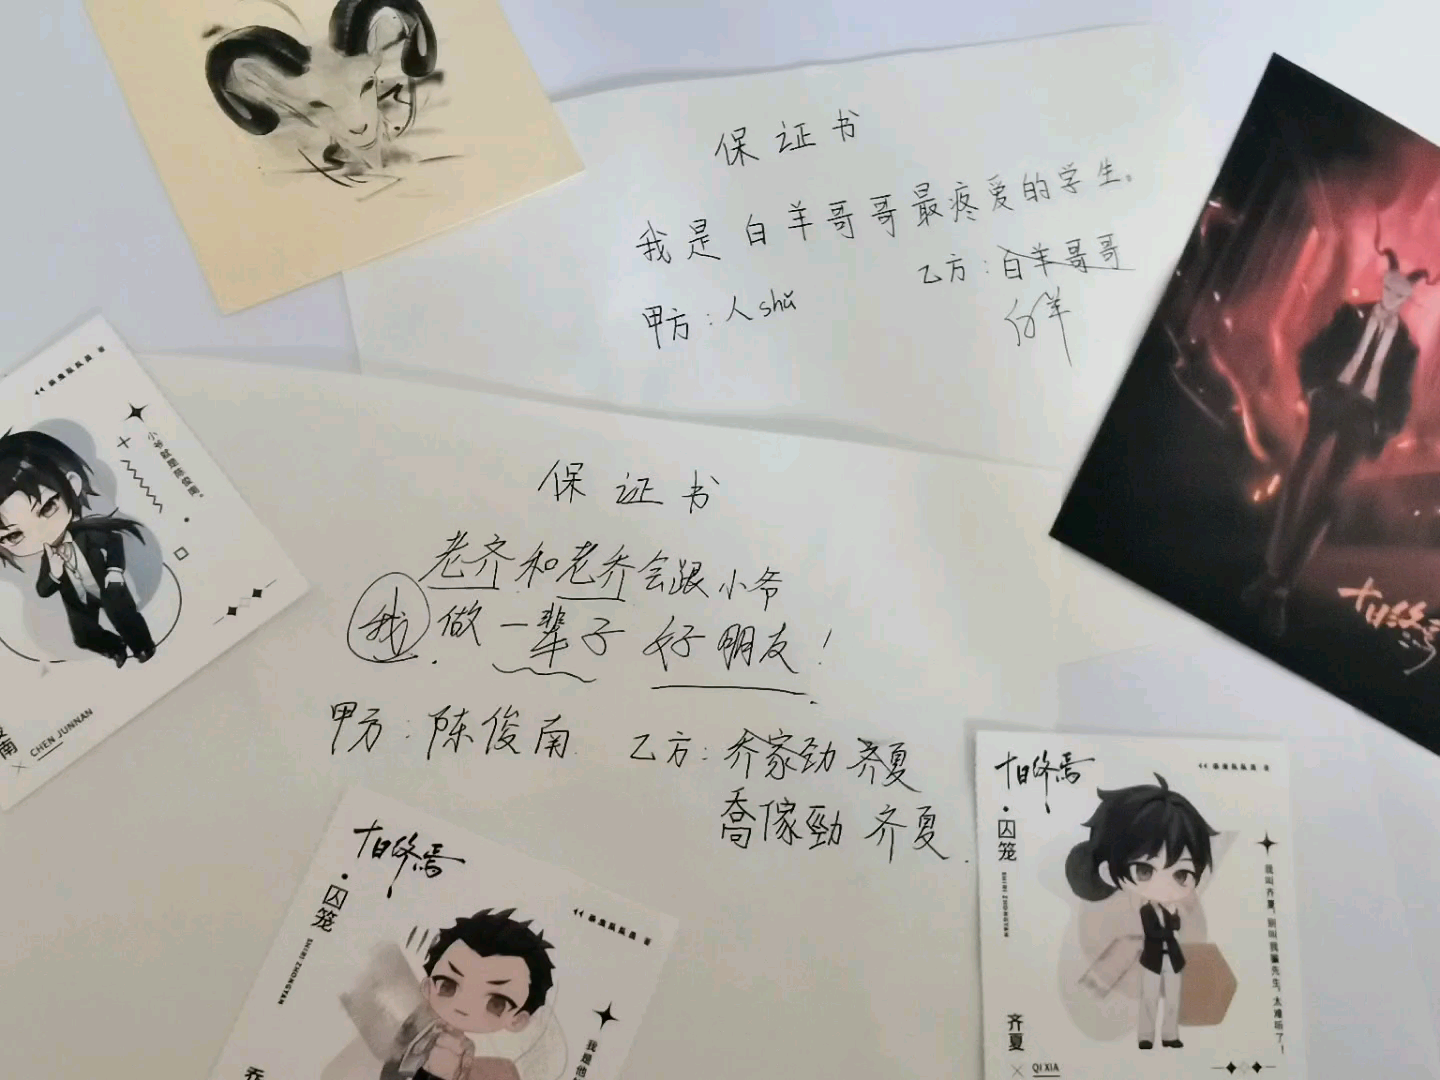 保证书
我是白羊哥哥最疼爱的学生。
甲方：人shǔ
乙方：白羊哥哥
白羊
保证书
老齐和老乔会跟小爷
我做一辈子好朋友！
甲方：陈俊南
乙方：乔家劲 齐夏
喬傢勁 齐夏
十日终焉
小爷就是陈俊南。
南
CHEN JUNNAN
十日终焉
囚笼
SHIRI ZHONGYAN
我是他
乔
十日终焉
囚笼
SHIRI ZHONGYAN
我叫齐夏，别叫我骗先生，太难听了！
齐夏
QI XIA